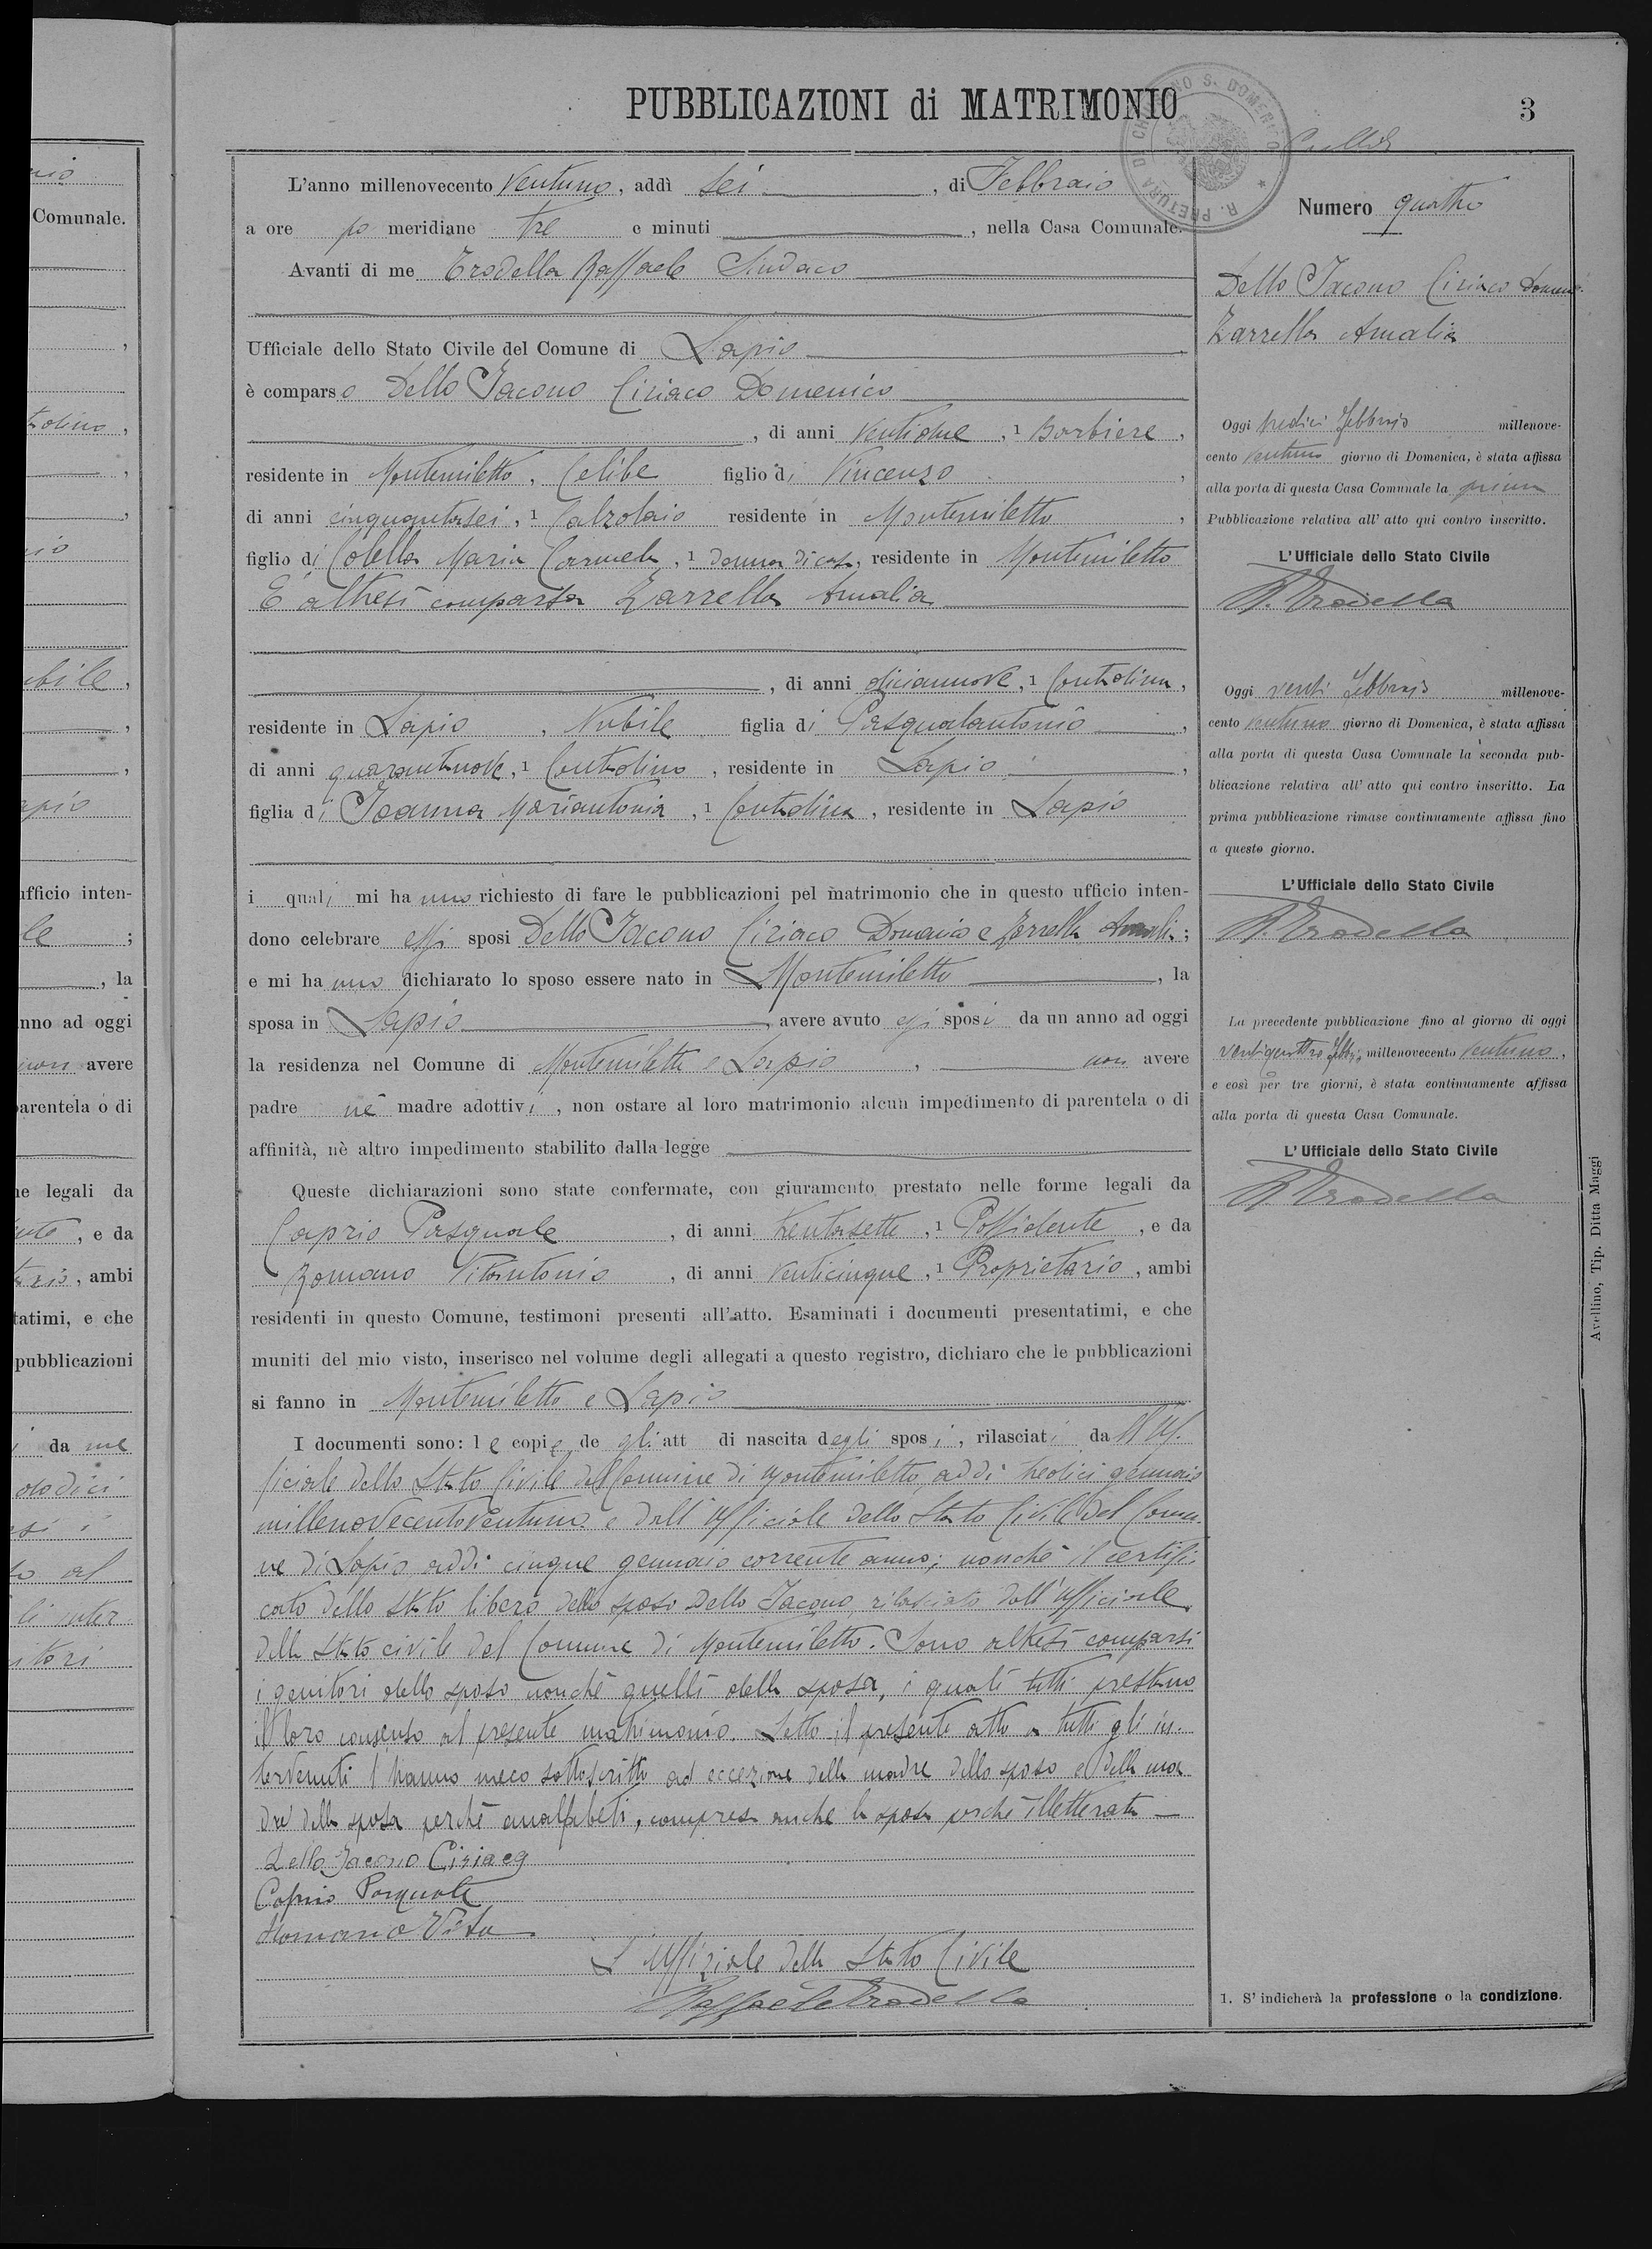 PUBBLICAZIONI di MATRIMONIO
3
L'anno millenovecento Ventuno, addì sei, di Febbraio
a ore po meridiane tre e minuti, nella Casa Comunale.
Avanti di me Trodella Raffaele Sindaco
Ufficiale dello Stato Civile del Comune di Lapio
è comparso Dello Iacono Ciriaco Domenico
, di anni Ventidue, 1 Barbiere,
residente in Montemiletto, Celibe figlio di Vincenzo,
di anni cinquantasei, 1 Calzolaio residente in Montemiletto,
figlio di Colella Maria Carmela, 1 donna di casa, residente in Montemiletto
È altresì comparsa Zarrella Amalia
, di anni diciannove, 1 Contadina,
residente in Lapio, Nubile figlia di Pasqualantonio,
di anni quarantanove, 1 Contadino, residente in Lapio,
figlia di Ioanna Mariantonia, 1 Contadina, residente in Lapio
i quali mi hanno richiesto di fare le pubblicazioni pel matrimonio che in questo ufficio inten-
dono celebrare essi sposi Dello Iacono Ciriaco Domenico e Zarrella Amalia;
e mi hanno dichiarato lo sposo essere nato in Montemiletto, la
sposa in Lapio, avere avuto essi sposi da un anno ad oggi
la residenza nel Comune di Montemiletto e Lapio, non avere
padre nè madre adottivi, non ostare al loro matrimonio alcun impedimento di parentela o di
affinità, nè altro impedimento stabilito dalla legge
Queste dichiarazioni sono state confermate, con giuramento prestato nelle forme legali da
Caprio Pasquale, di anni trentasette, 1 Possidente, e da
Romano Vitantonio, di anni Venticinque, 1 Proprietario, ambi
residenti in questo Comune, testimoni presenti all'atto. Esaminati i documenti presentatimi, e che
muniti del mio visto, inserisco nel volume degli allegati a questo registro, dichiaro che le pubblicazioni
si fanno in Montemiletto e Lapio
I documenti sono: le copie de gli att di nascita degli sposi, rilasciati da ll'Uf.
ficiale dello Stato Civile del Comune di Montemiletto, addì tredici gennaio
millenovecentoventuno e dall'Ufficiale dello Stato Civile del Comu-
ne di Lapio addì cinque gennaio corrente anno; nonchè il certifi-
cato dello stato libero dello sposo Dello Iacono, rilasciato dall'Ufficiale
dello stato civile del Comune di Montemiletto. Sono altresì comparsi
i genitori dello sposo nonchè quelli della sposa, i quali tutti prestano
il loro consenso al presente matrimonio. Letto il presente atto a tutti gli in-
tervenuti l'hanno meco sottoscritto ad eccezione della madre dello sposo e della ma
dre della sposa perchè analfabeti, compresa anche la sposa perchè illetterata
Dello Iacono Ciriaco
Caprio Pasquale
Romano Vito
L'Uffiziale dello Stato Civile
Raffaele Trodella
Numero quattro
Dello Iacono Ciriaco Domeni-
Zarrella Amalia
Oggi tredici Febbraio millenove-
cento Ventuno giorno di Domenica, è stata affissa
alla porta di questa Casa Comunale la prima
Pubblicazione relativa all' atto qui contro inscritto.
L'Ufficiale dello Stato Civile
R. Trodella
Oggi venti Febbraio millenove-
cento Ventuno giorno di Domenica, è stata affissa
alla porta di questa Casa Comunale la seconda pub-
blicazione relativa all' atto qui contro inscritto. La
prima pubblicazione rimase continuamente affissa fino
a questo giorno.
L'Ufficiale dello Stato Civile
R. Trodella
La precedente pubblicazione fino al giorno di oggi
Ventiquattro Febb.io millenovecento Ventuno,
e così per tre giorni, è stata continuamente affissa
alla porta di questa Casa Comunale.
L'Ufficiale dello Stato Civile
R. Trodella
1. S' indicherà la professione o la condizione.
Avellino, Tip. Ditta Maggi
Comunale.
ufficio inten-
, la
anno ad oggi
non avere
parentela o di
ne legali da
, e da
, ambi
tatimi, e che
pubblicazioni
da me